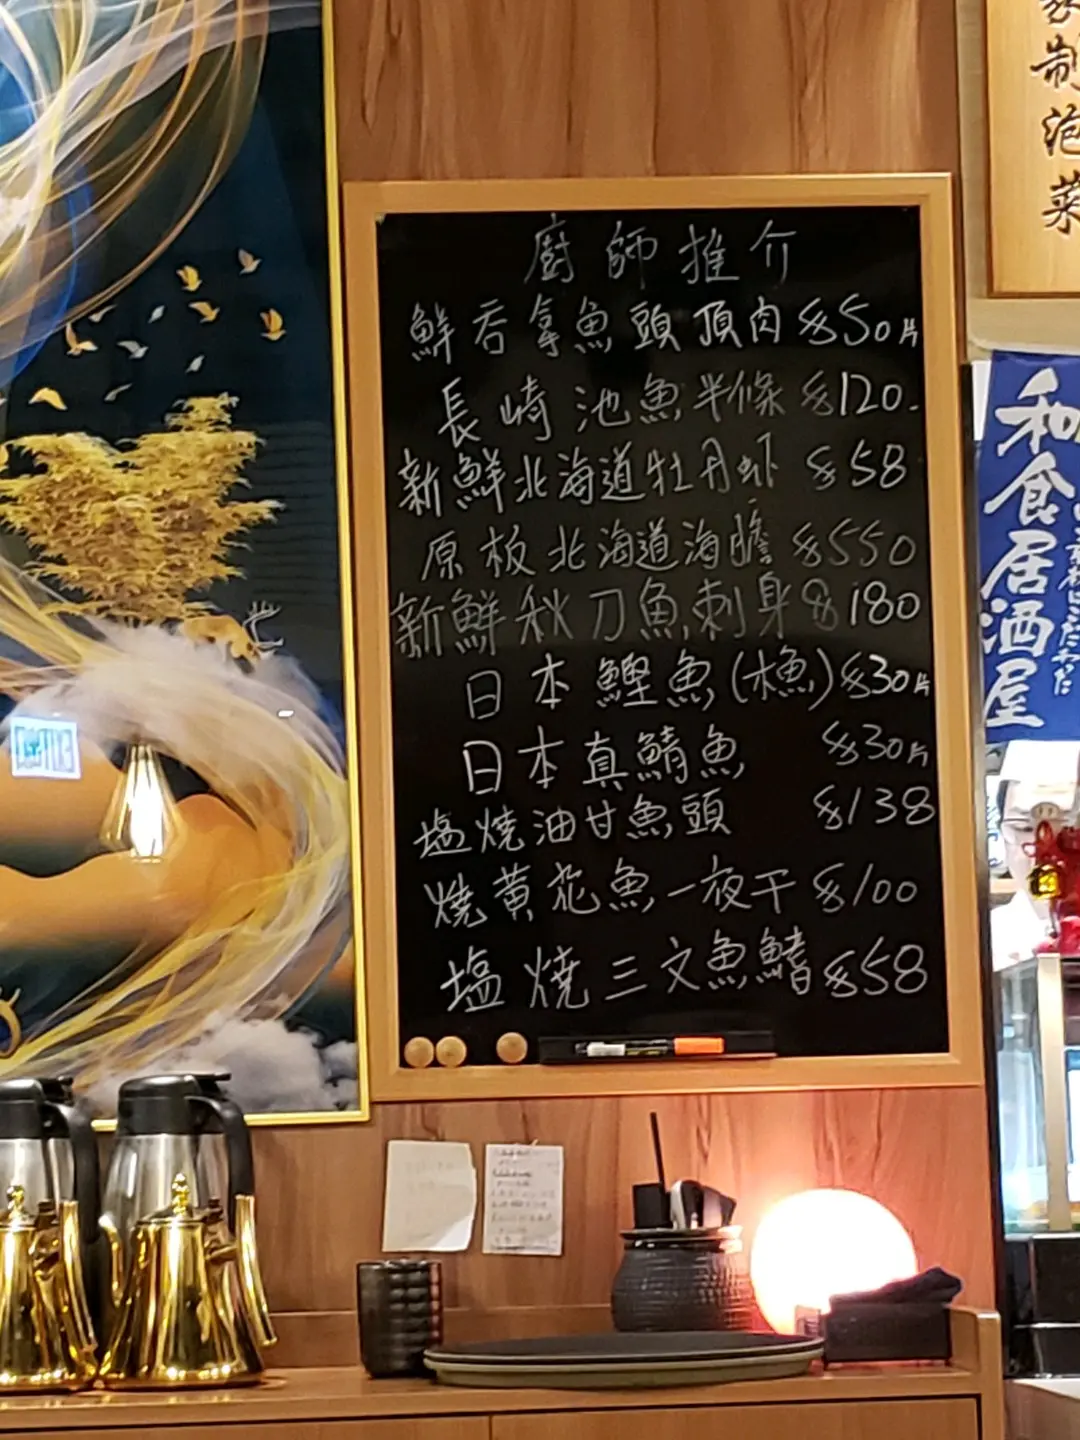 廚師推介
鮮吞拿魚頭頂肉 $50片
長崎池魚半條 $120-
新鮮北海道牡丹虾 $58
原板北海道海膽 $550
新鮮秋刀魚刺身 $180
日本鰹魚 $30片
日本真鯖魚 $30片
塩燒油甘魚頭 $138
燒黃花魚一夜干 $100
塩燒三文魚鰭 $58
制泡菜
和食居酒屋